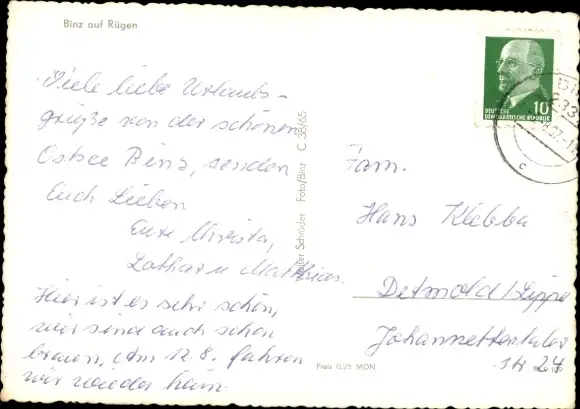 Binz auf Rügen
Viele liebe Urlaubs-
grüße von der schönen
Ostsee Binz, senden
Euch Lieben
Eure Christa,
Lothar u Matthias.
Hier ist es sehr schön,
wir sind auch schon
braun. Am 12.8. fahren
wir wieder heim.
Schröder Foto/Binz C 38/65
10
DEUTSCHE
DEMOKRATISCHE REPUBLIK
Fam.
Hans Klebba
Detmold/Lippe
Johannettentaler
Preis 0,25 MDN